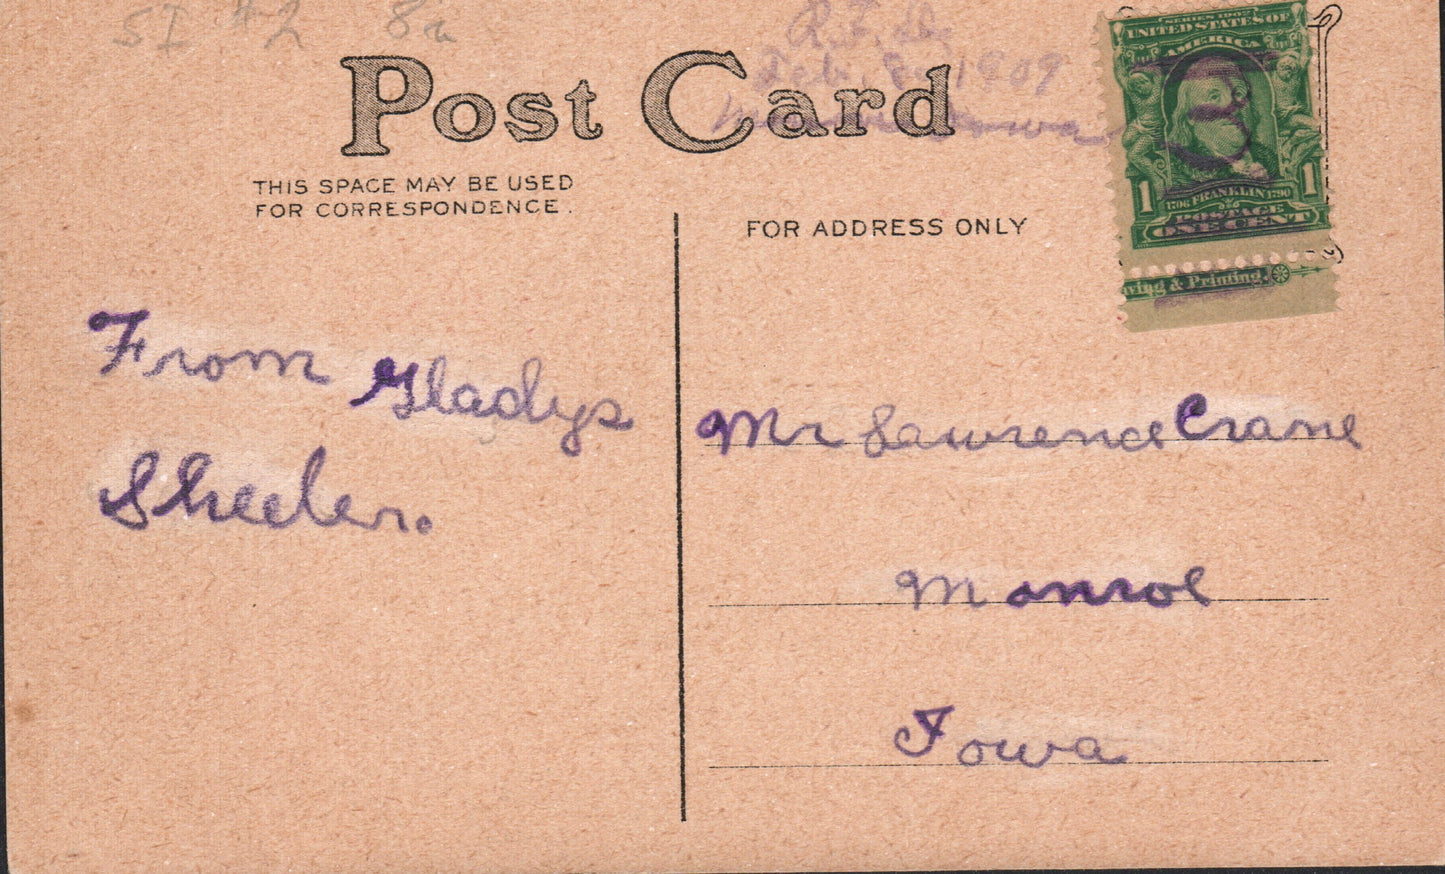 SI #2 8a
R.F.D.
Feb. 8, 1909
Monroe Iowa
Post Card
THIS SPACE MAY BE USED
FOR CORRESPONDENCE.
FOR ADDRESS ONLY
SERIES 1902
UNITED STATES OF
AMERICA
1 1706 FRANKLIN 1790 1
POSTAGE
ONE CENT
ving & Printing.
From Gladys
Sheeler.
Mr Lawrence Crane
Monroe
Iowa